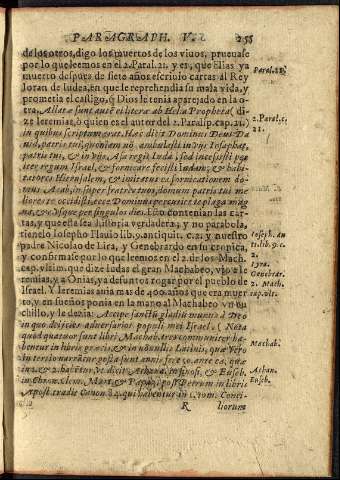 PARAGRAPH. V.
255
de los otros, digo los muertos de los viuos, prueuase
por lo que leemos en el 2. Paral. 21. y es, que Elias ya
muerto despues de siete años escriuio cartas al Rey
Ioran de Iudea, en que le reprehendia su mala vida, y
prometia el castigo, q̃ Dios le tenia aparejado en la o-
tra. Allatæ sunt autẽ ei literæ ab Helia Propheta (di-
ze Ieremias, ò quien es el autor del 2. Paralip. cap. 21.)
in quibus scriptum erat. Hæc dicit Dominus Deus Da-
uid, patris tui, quoniam nõ ambulasti in vijs Iosaphat,
patris tui, & in vijs Asa regis Iuda, sed incessisti per
iter regum Israel, & fornicare fecisti Iudam, & habi-
tatores Hierusalem, & imitatus es fornicationem do-
mus Acab, insuper & fratres tuos, domum patris tui me
liores te occidisti, ecce Dominus percutiet te plaga mag
na, &c. Vsque per singulos dies. Esto contenian las car-
tas, y que esta sea historia verdadera, y no parabola,
tienelo Iosepho Flauio lib. 9. antiquit. c. 2. y nuestro
padre Nicolao de Lira, y Genebrardo en su cronica,
y confirmase por lo que leemos en el 2. lib. de los Mach.
cap. vltim. que dize Iudas el gran Machabeo, vio a Ie
remias, y a Onias, ya defuntos rogar por el pueblo de
Israel. Y Ieremias auia mas de 400. años que era muer
to, y en sueños ponia en la mano al Machabeo vn cu-
chillo, y le dezia: Accipe sanctũ gladiũ munus à Deo
in quo deijcies aduersarios populi mei Israel. (Nota
quod quatuor sunt libri Machab.
bentur in libris græcis, & in nõnullis Latinis, quæ verò
in tertio narrãtur
in 1. & 2. habẽtur, vt dicit Athana. in sinopsi, & Euseb.
in Chron. Clem. post Petrum in libris
Apost. tradit. Canon 84. qui habentur in 1. tom. Conci-
R liorum
Paral. 21.
2. Paral. c.
21.
Ioseph. an
ti. lib. 9. c.
2.
Lyra.
Genebrar.
2. Mach.
cap. vlt.
Machab.
Athan.
Euseb.